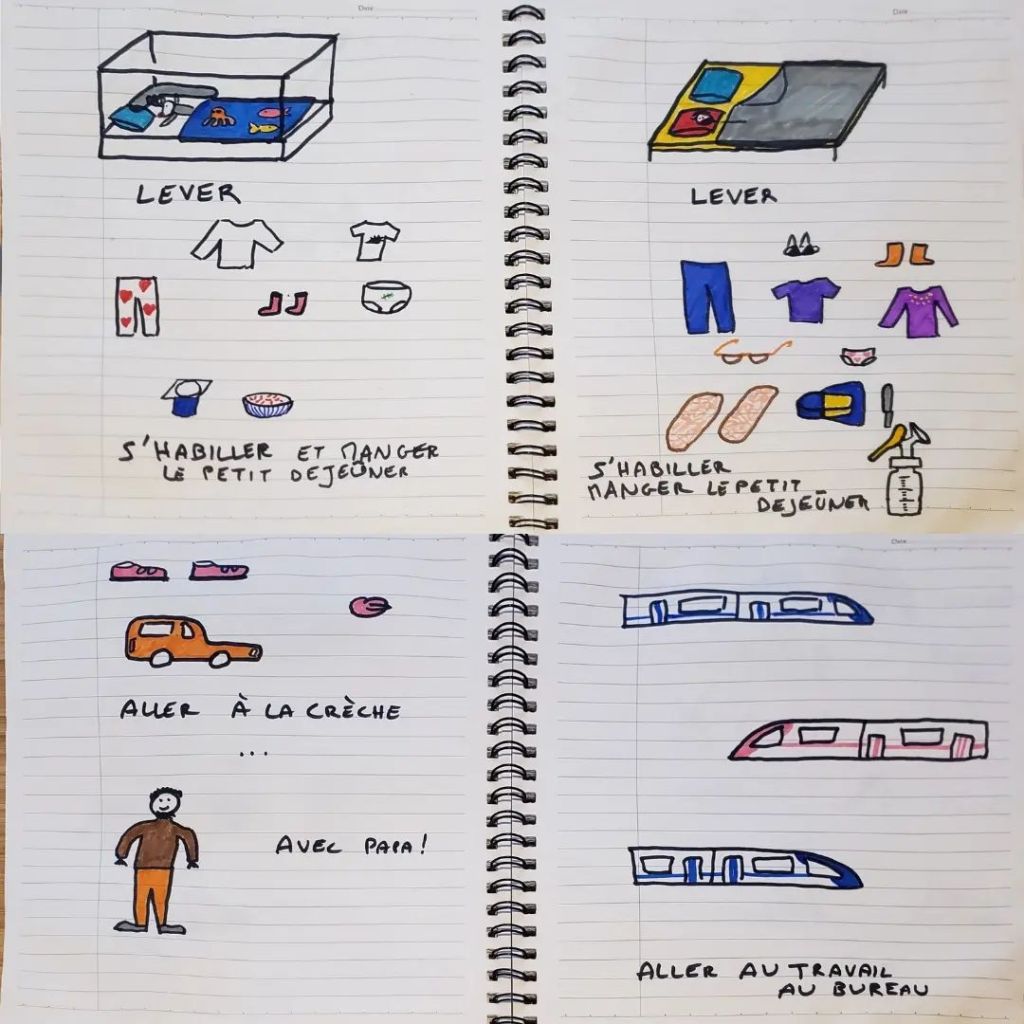 Date
Date
LEVER
LEVER
S'HABILLER ET MANGER
LE PETIT DEJEÛNER
S'HABILLER
MANGER LE PETIT
DEJEÛNER
Date
ALLER À LA CRÈCHE
...
AVEC PAPA!
ALLER AU TRAVAIL
AU BUREAU